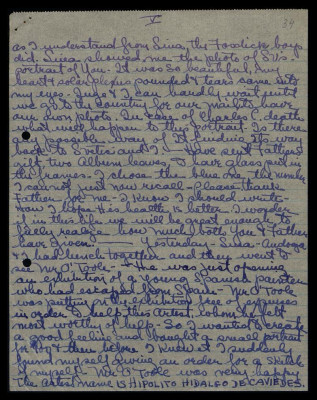 V
39
as I understand from Sina, the Fosdick boys
did. Sina showed me the photo of Sv's
portrait of You. It was so beautiful, my
heart & solar plexus pounded & tears came into
my eyes. Inge & I can hardly wait until
we go to the country for our mailets have
our own photo. In case of Charles C. death
what will happen to this portrait. Is there
any possible way of it finding its way
back to Svetoslav? — Have sent Father's
gift, two Album leaves, to have glass put in
the frames. I chose the blue one, the number
I cannot just now recall — Please thank
Father for me — I know I should write
Now I hope His health is better. I wonder
if in this life we will be great enough to
fully realize how much both You & Father
have given. — Yesterday — Sina —
& I had lunch together and they went to
see Mr O'Toole. He was just opening
an exhibition of a young Spanish painter
who had escaped from Spain. Mr O'Toole
was putting on the exhibition free of expenses
in order to help this artist, whom he felt
most worthy of help — So I wanted to create
a good feeling and bought a small portrait
for then before I knew it I suddenly
found myself giving an order for a sketch
of myself — Mr O'Toole was very happy
the artist name is HIPOLITO HIDALGO DE CAVIEDES.